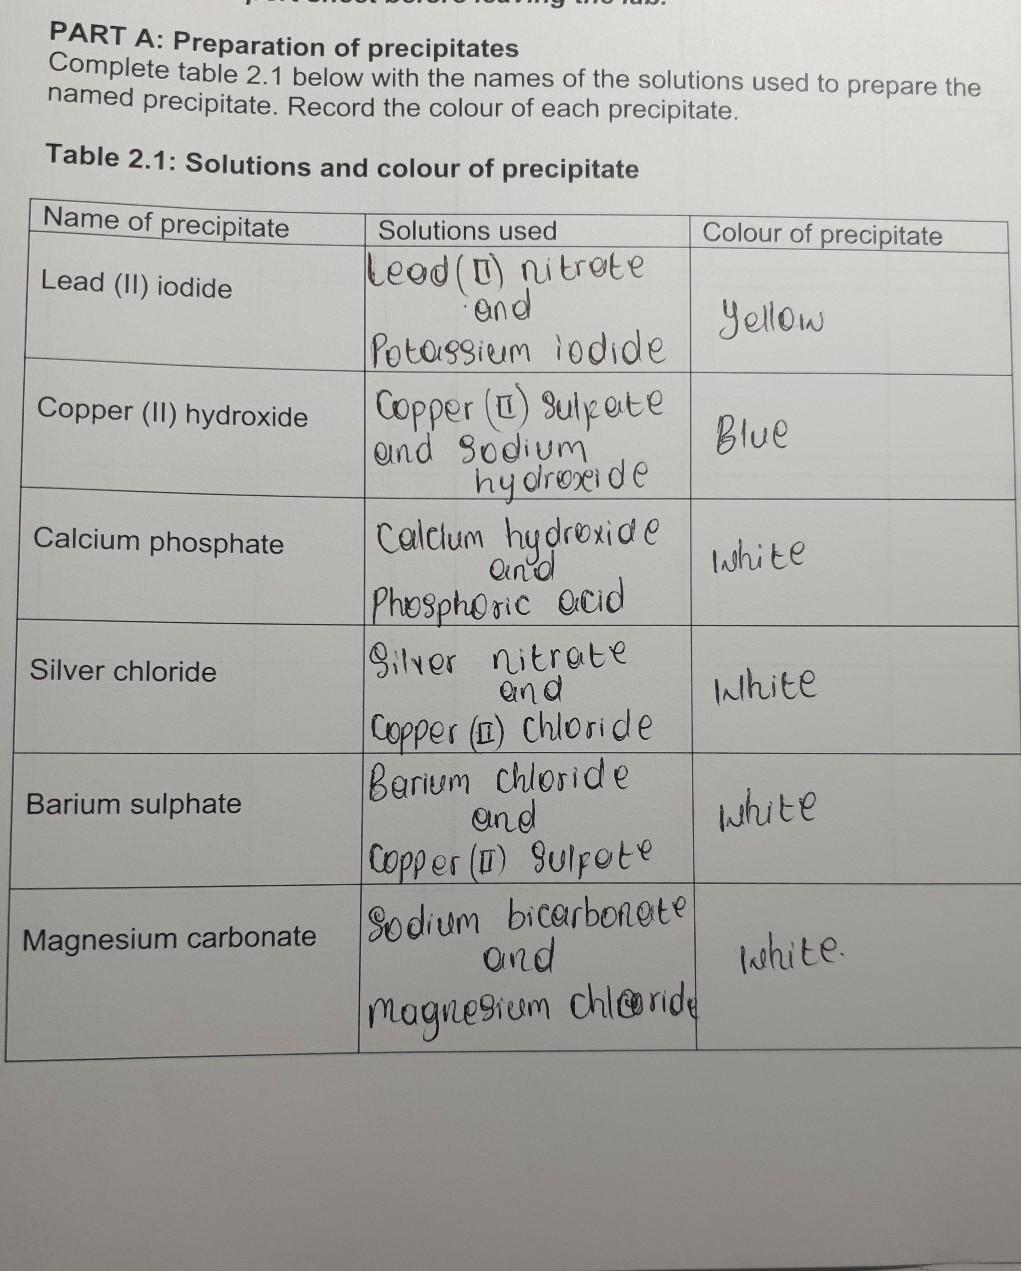 before leaving the lab.
PART A: Preparation of precipitates
Complete table 2.1 below with the names of the solutions used to prepare the
named precipitate. Record the colour of each precipitate.
Table 2.1: Solutions and colour of precipitate
Name of precipitate
Solutions used
Colour of precipitate
Lead (II) iodide
Lead (II) nitrate
and
Potassium iodide
Yellow
Copper (II) hydroxide
Copper (II) Sulfate
and Sodium
hydroxide
Blue
Calcium phosphate
Calcium hydroxide
and
Phosphoric acid
White
Silver chloride
Silver nitrate
and
Copper (II) Chloride
White
Barium sulphate
Barium chloride
and
Copper (II) Sulfate
White
Magnesium carbonate
Sodium bicarbonate
and
magnesium chloride
White.